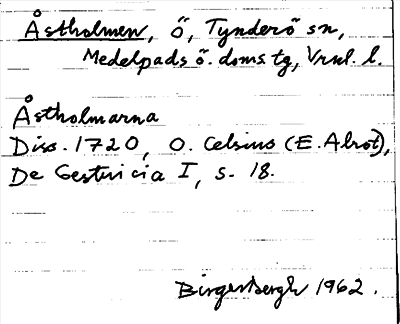 Åstholmen, ö, Tynderö sn,
Medelpads ö. doms.tg, Vrnl. l.
Åstholmarna
Diss. 1720, O. Celsius (E. Alrot),
De Gestricia I, s. 18.
Birger Bergh 1962.